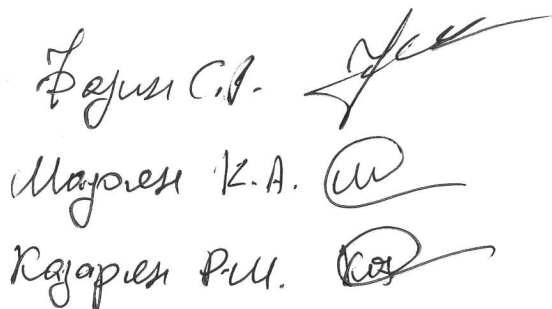 Фазин С.Я.
Мазолян К.А.
Казарян Р.М.